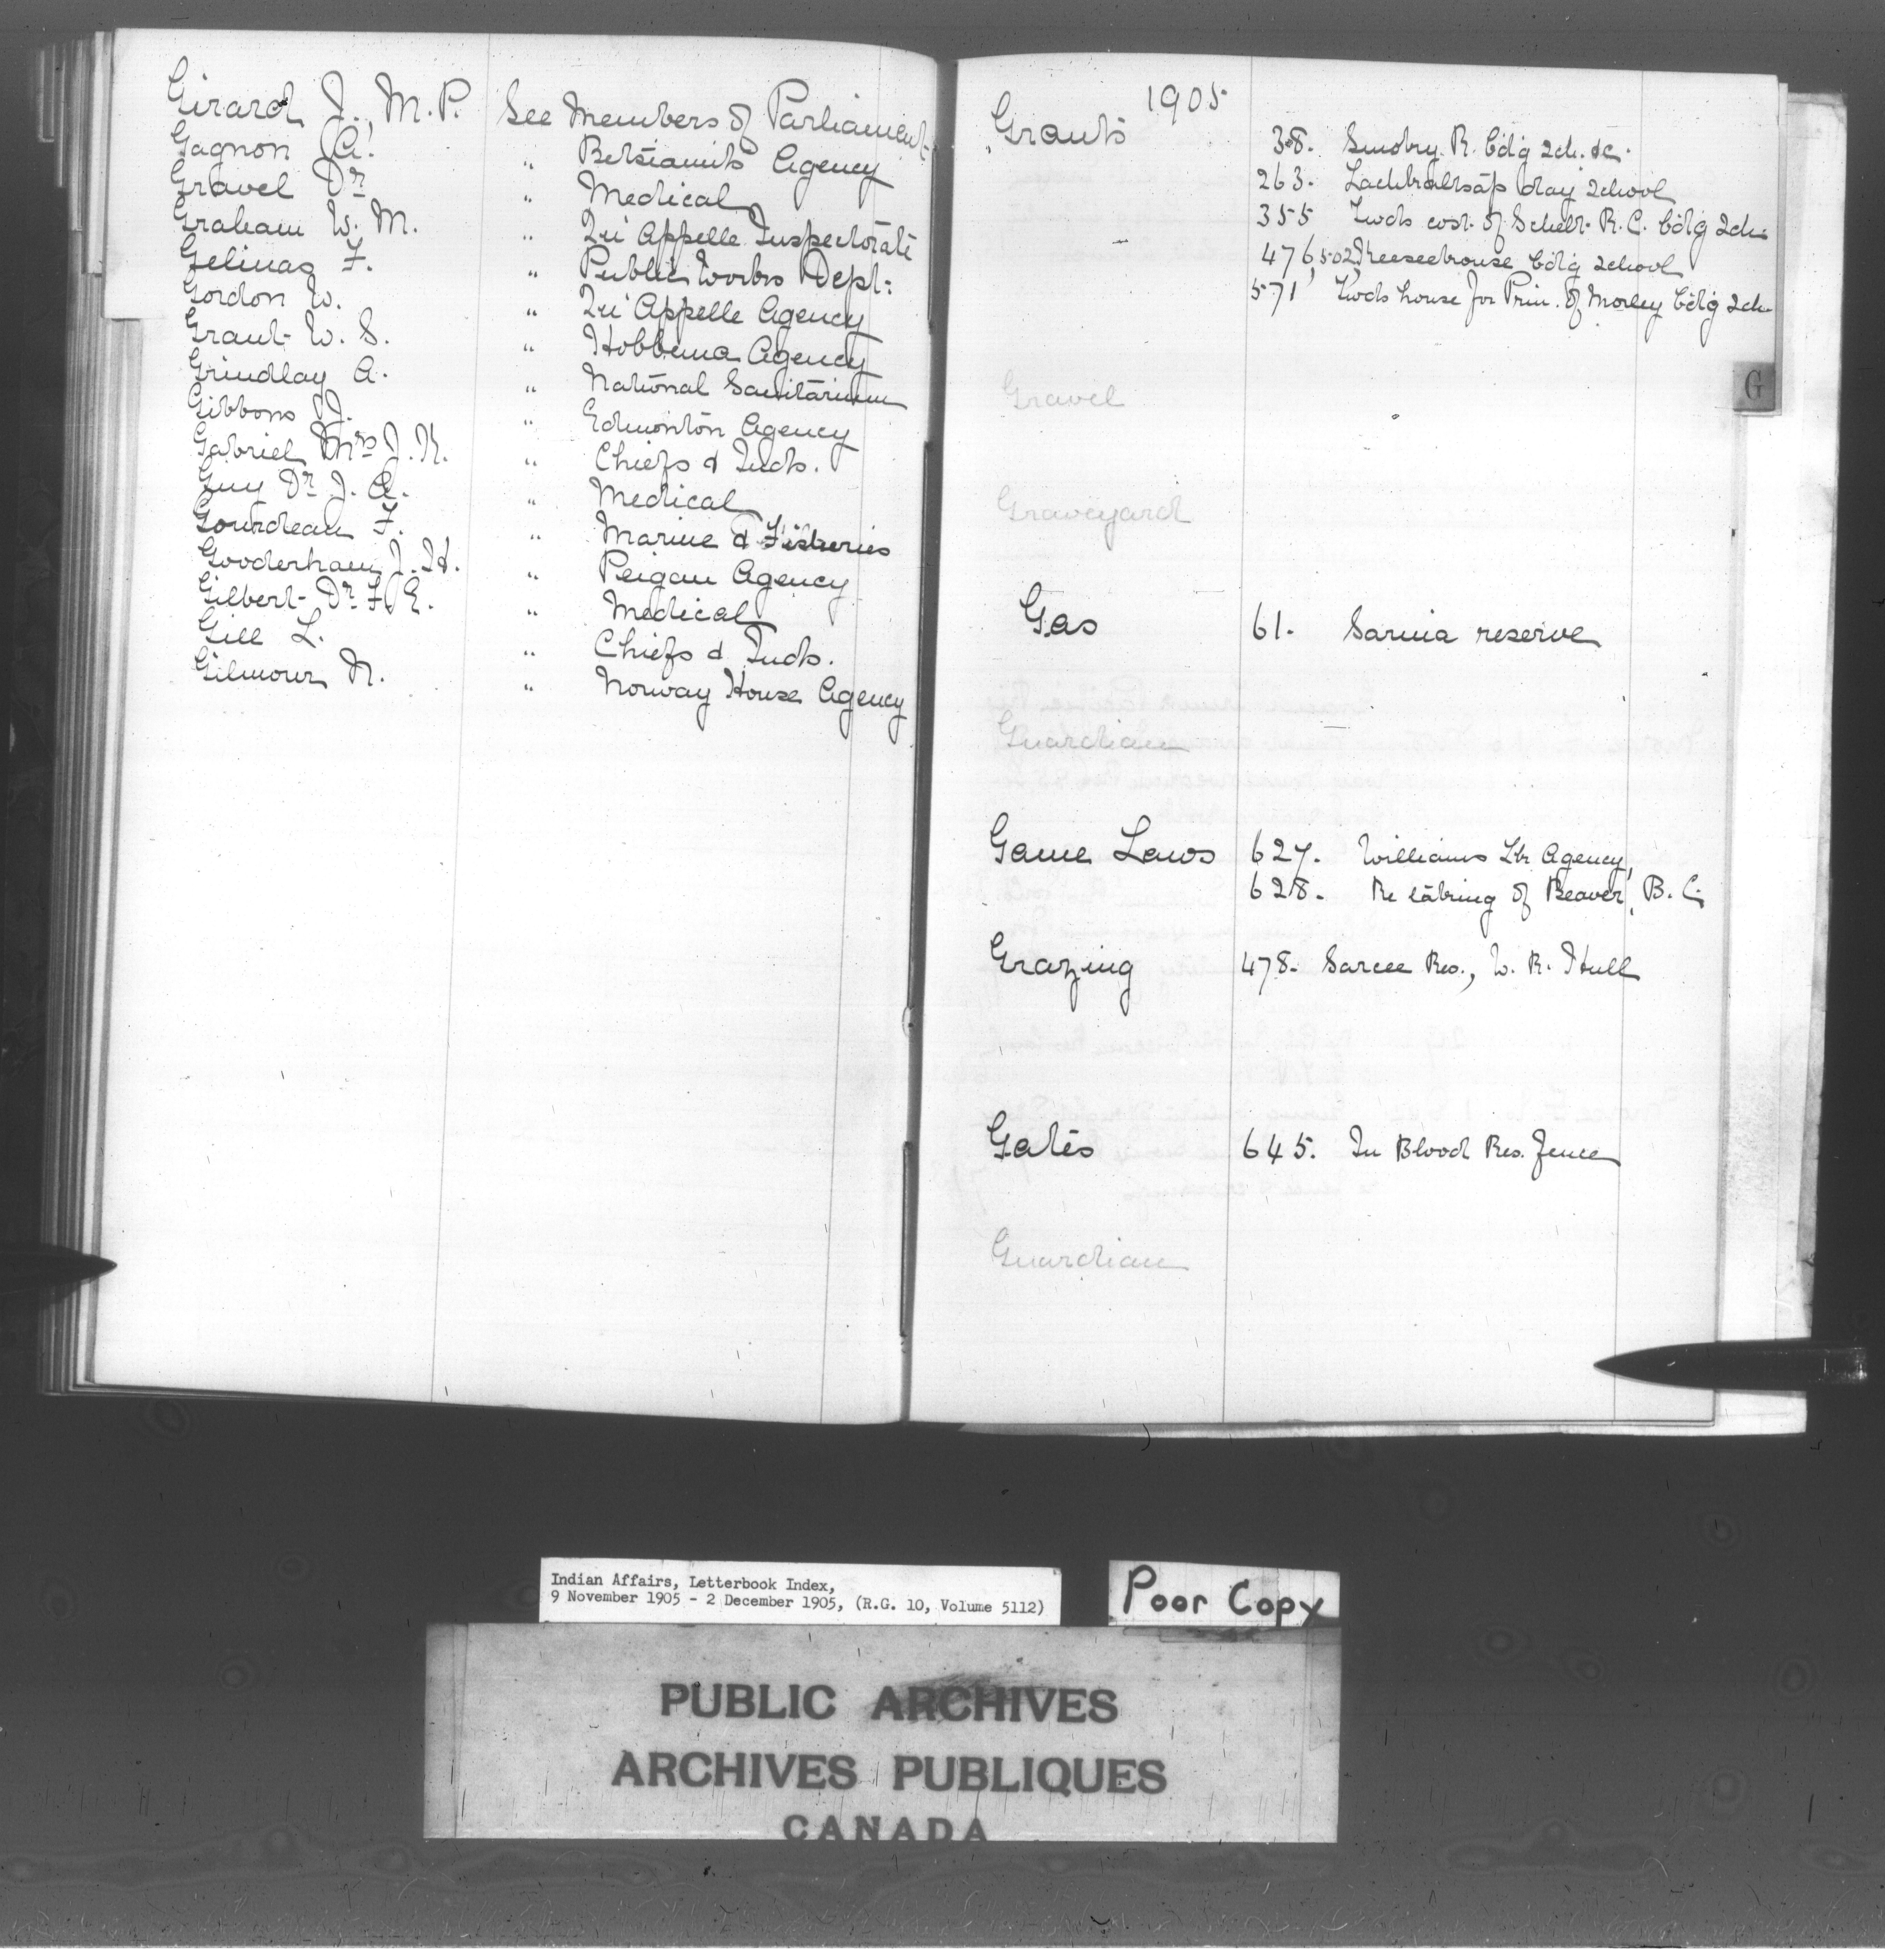 Girard J., M.P. See Members of Parliament
Gagnon A. " Betsiamits Agency
Gravel Dr " Medical
Graham W. M. " Qu'Appelle Inspectorate
Gelinas F. " Public Works Dept:
Gordon W. " Qu'Appelle Agency
Grant W. S. " Hobbema Agency
Grindlay A. " National Sanitarium
Gibbons J. " Edmonton Agency
Gabriel Mrs J. K. " Chiefs & Inds.
Guy Dr J. A. " Medical
Gourdeau F. " Marine & Fisheries
Gooderham J. H. " Peigan Agency
Gilbert Dr F. E. " Medical
Gill L. " Chiefs & Inds.
Gilmour N. " Norway House Agency
1905
Grants 38. Sandy. R. bdg sch. &c.
263. Lachkaltsap day school
355 Twds cost of Schelt R. C. bdg sch.
476, 502, Keeseekouse bdg school
571 Twds house for Prin. of Morley bdg sch.
G
Gravel
Graveyard
Gas 61. Sarnia reserve
Guardian
Game Laws 627. Williams Lk Agency,
628. Re taking of Beaver, B. C.
Grazing 478. Sarcee Res., W. R. Hull
Gates 645. In Blood Res. fence
Guardian
Indian Affairs, Letterbook Index,
9 November 1905 - 2 December 1905, (R.G. 10, Volume 5112)
Poor Copy
PUBLIC ARCHIVES
ARCHIVES PUBLIQUES
CANADA